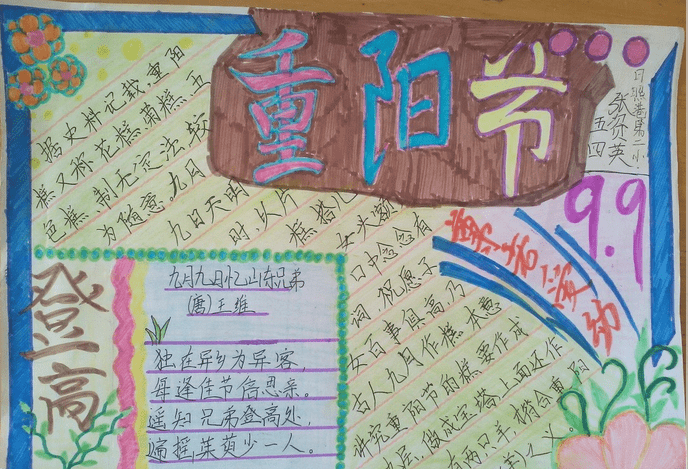 重阳节
日照港第二小
张资英
五四
9.9
据史料记载,重阳
糕又称花糕、菊糕、五
色糕,制无定法,较
为随意。九月
九日天明
时,以片
糕搭儿
女头额,
口中念念有
词,祝愿子
女百事俱高,乃
古人九月作糕 本意
讲究重阳节的糕要作成
九层,做成宝塔,上面还作
有两只羊,揩合重阳
(羊)之义
尊老爱幼
登高
九月九日忆山东兄弟
(唐)王维
独在异乡为异客,
每逢佳节倍思亲。
遥知兄弟登高处,
遍插茱萸少一人。